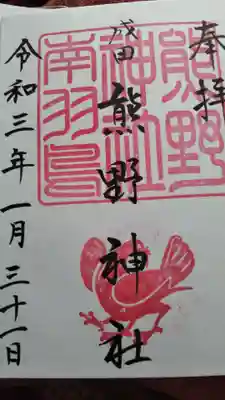 奉拝
成田
熊野神社
熊野
神社
南羽鳥
令和三年一月三十一日